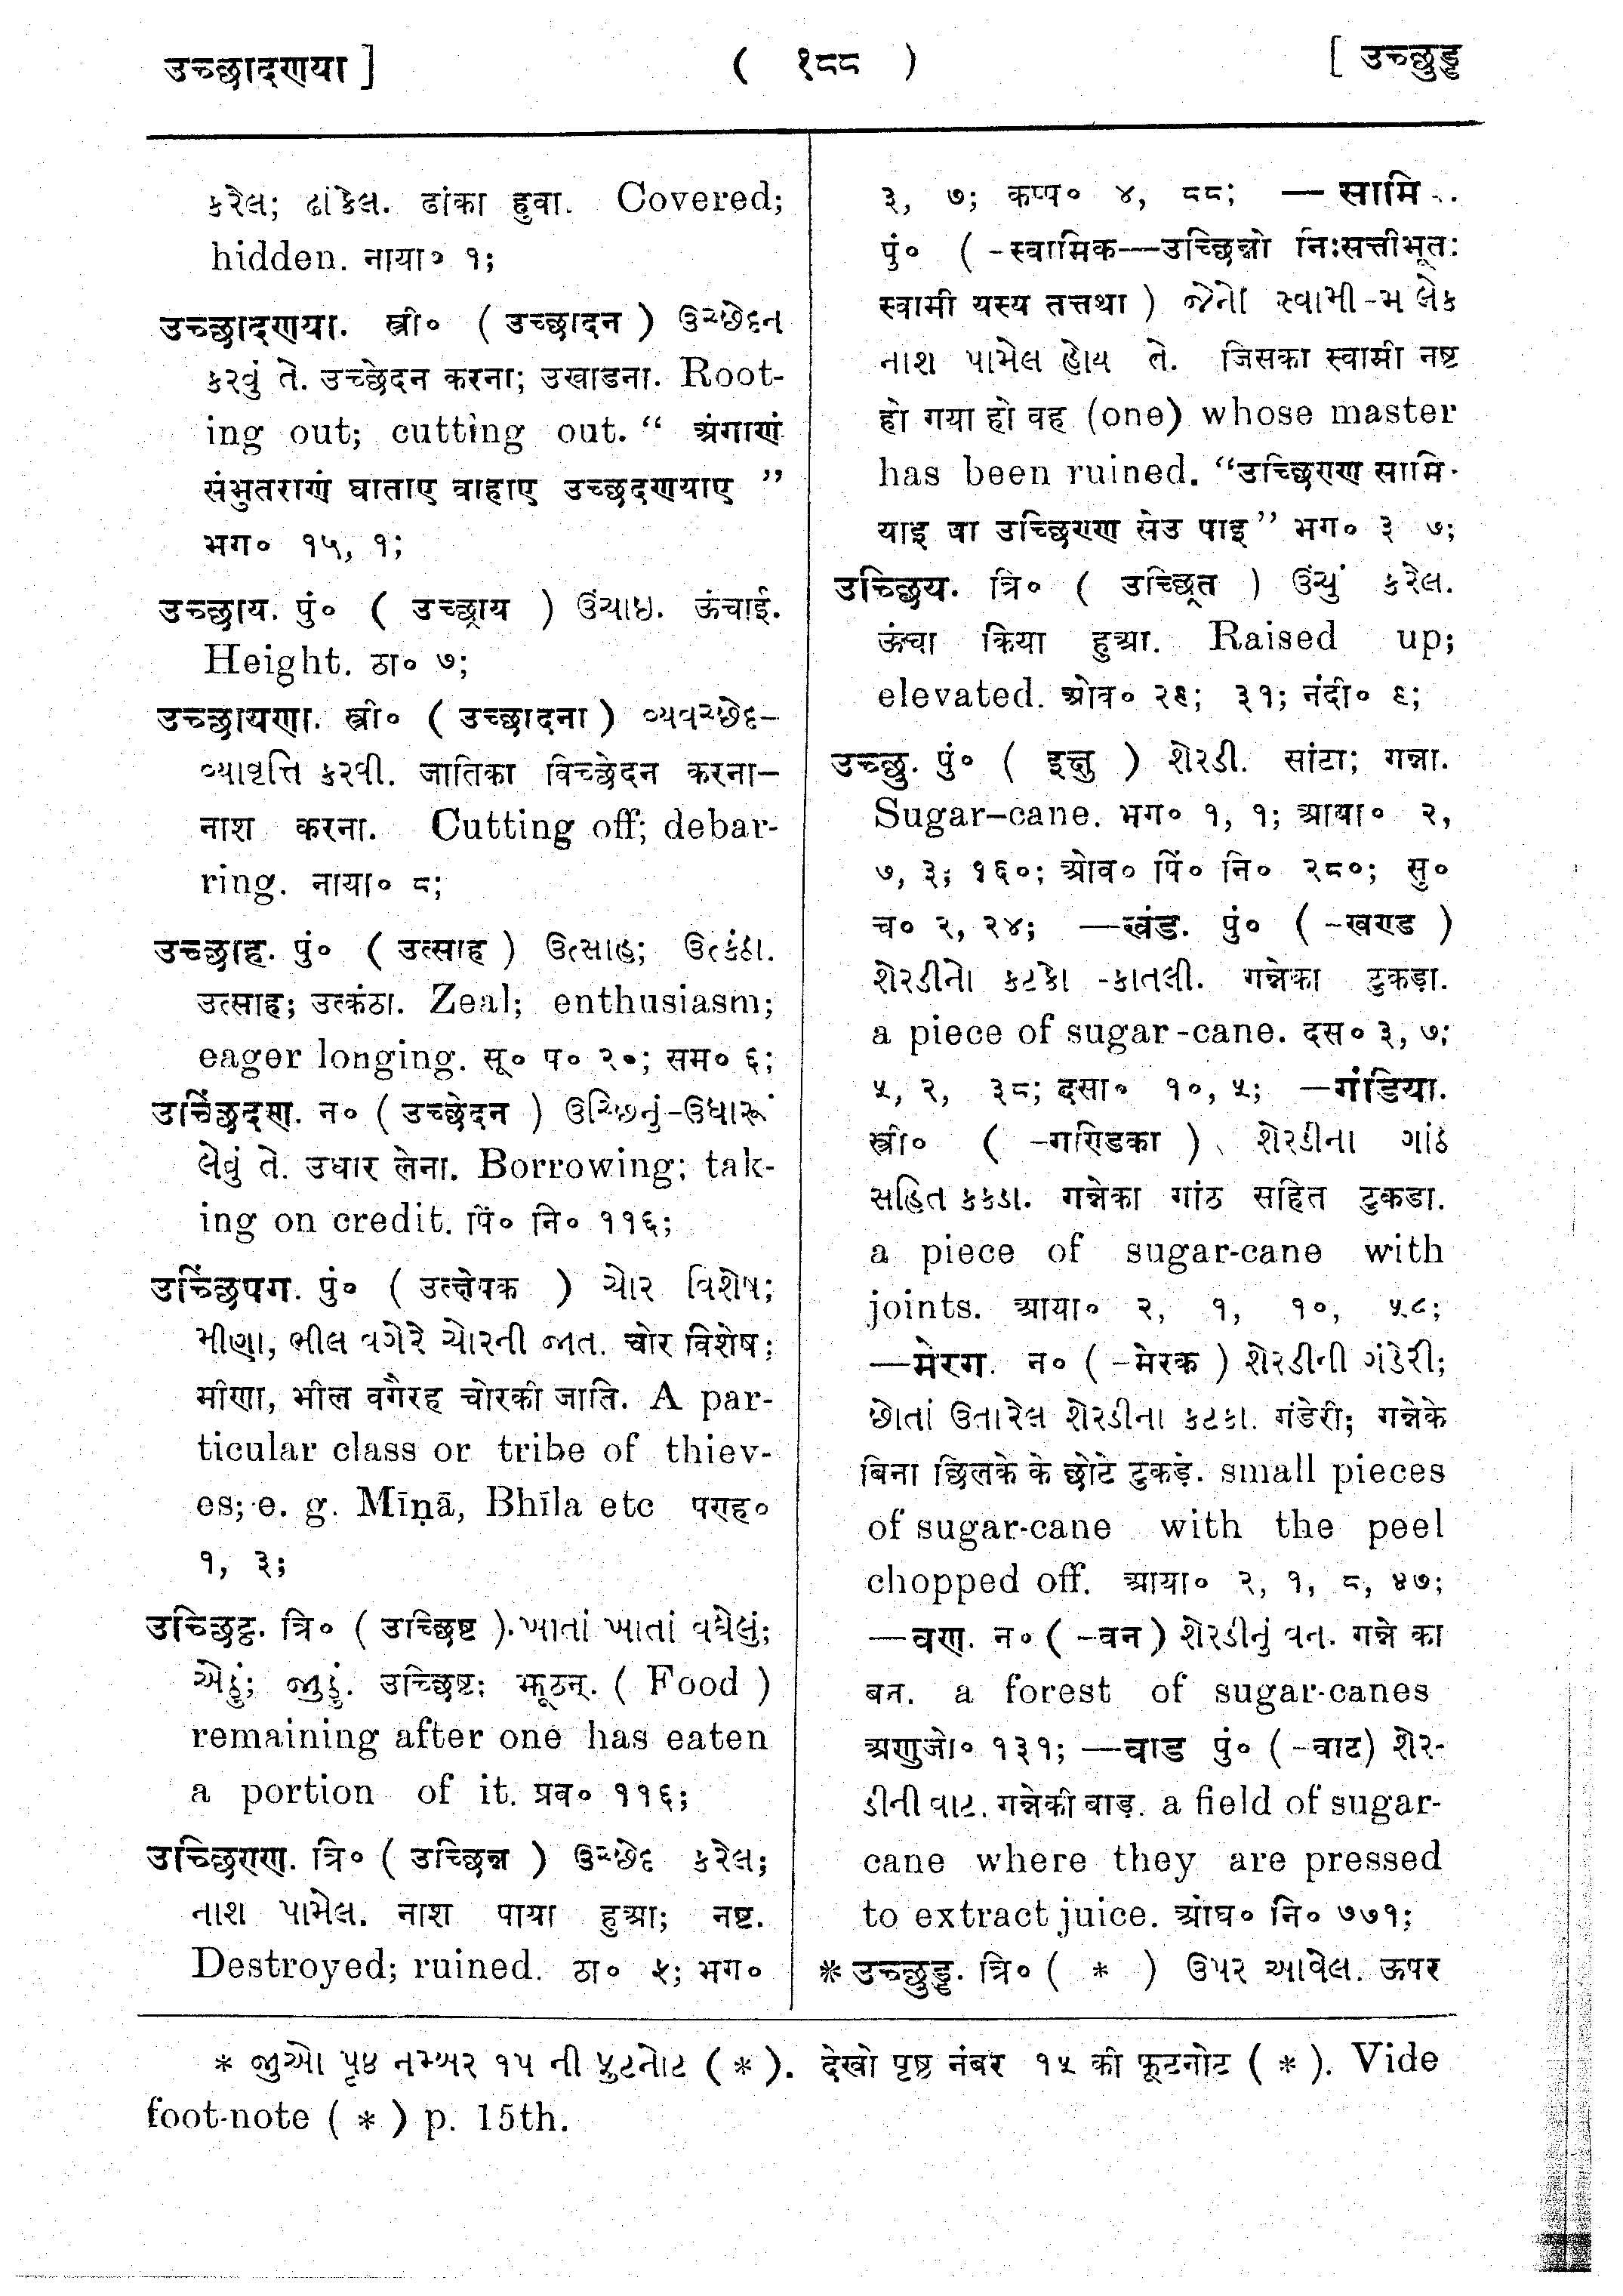 उच्छादणया ]
( १८८ )
[ उच्छुड्ढ
કરેલ; ઢાંકેલ. ढांका हुवा. Covered;
hidden. नाया० १;
उच्छादणया. स्त्री० ( उच्छादन ) ઉચ્છેદન
કરવું તે. उच्छेदन करना; उखाडना. Root-
ing out; cutting out. “ अंगाणं
संभुतराणं घाताए वाहाए उच्छदणयाए ”
भग० १५, १;
उच्छाय. पुं० ( उच्छ्राय ) ઉંચાઇ. ऊंचाई.
Height. ठा० ७;
उच्छायणा. स्त्री० ( उच्छादना ) વ્યવચ્છેદ–
વ્યાવૃત્તિ કરવી. जातिका विच्छेदन करना–
नाश करना. Cutting off; debar-
ring. नाया० ८;
उच्छाह. पुं० ( उत्साह ) ઉત્સાહ; ઉત્કંઠા.
उत्साह; उत्कंठा. Zeal; enthusiasm;
eager longing. सू० प० २०; सम० ६;
उच्छिंदण. न० ( उच्छेदन ) ઉચ્છિનું-ઉધારૂં
લેવું તે. उधार लेना. Borrowing; tak-
ing on credit. पिं० नि० ११६;
उच्छिंपग. पुं० ( उत्क्षेपक ) ચોર વિશેષ;
મીણા, ભીલ વગેરે ચોરની જાત. चोर विशेष;
मीणा, भील वगैरह चोरकी जाति. A par-
ticular class or tribe of thiev-
es; e. g. Mīṇā, Bhīla etc पराह०
१, ३;
उच्छिट्ठ. त्रि० ( उच्छिष्ट ). ખાતાં ખાતાં વધેલું;
એઠું; જુઠું. उच्छिष्ट; झूठन्. ( Food )
remaining after one has eaten
a portion of it. प्रव० ११६;
उच्छिण्ण. त्रि० ( उच्छिन्न ) ઉચ્છેદ કરેલ;
નાશ પામેલ. नाश पाया हुआ; नष्ट.
Destroyed; ruined. ठा० ५; भग०
३, ७; कप्प० ४, ८८; — सामि..
पुं० ( -स्वामिक—उच्छिन्नो निःसत्तीभूतः
स्वामी यस्य तत्तथा ) જેનો સ્વામી -મ લેક
નાશ પામેલ હોય તે. जिसका स्वामी नष्ट
हो गया हो वह (one) whose master
has been ruined. “उच्छिण्ण सामि-
याइ वा उच्छिण्ण सेउ याइ” भग० ३ ७;
उच्छिय. त्रि० ( उच्छ्रित ) ઉંચું કરેલ.
ऊंचा किया हुआ. Raised up;
elevated. ओव० २९; ३१; नंदी० ९;
उच्छु. पुं० ( इक्षु ) શેરડી. सांटा; गन्ना.
Sugar–cane. भग० १, १; आया० २,
७, ३; १६०; ओव० पिं० नि० २८०; सु०
च० २, २४; —खंड. पुं० ( -खण्ड )
શેરડીનો કટકો -કાતલી. गन्नेका टुकड़ा.
a piece of sugar-cane. दस० ३, ७;
५, २, ३८; दसा० १०, ५; —गंडिया.
स्त्री० ( -गण्डिका ) શેરડીના ગાંઠ
સહિત કકડા. गन्नेका गांठ सहित टुकडा.
a piece of sugar-cane with
joints. आया० २, १, १०, ५८;
—मेरग. न० ( -मेरक ) શેરડીની ગંડેરી;
છોતાં ઉતારેલ શેરડીના કટકા. गंडेरी; गन्नेके
बिना छिलके के छोटे टुकड़े. small pieces
of sugar-cane with the peel
chopped off. आया० २, १, ८, ४७;
—वण. न० ( -वन ) શેરડીનું વન. गन्ने का
बन. a forest of sugar-canes
अणुजो० १३१; —वाड पुं० ( -वाट ) શેર-
ડીની વાટ. गन्नेकी बाड़. a field of sugar-
cane where they are pressed
to extract juice. ओघ० नि० ७७१;
* उच्छुड्ढ. त्रि० ( * ) ઉપર આવેલ. ऊपर
* જુઓ પૃષ્ઠ નમ્બર ૧૫ ની ફુટનોટ ( * ). देखो पृष्ठ नंबर १५ की फूटनोट ( * ). Vide
foot-note ( * ) p. 15th.